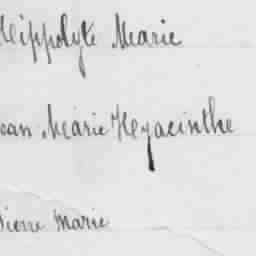 Hippolyte Marie
Jean Marie Hyacinthe
Pierre Marie